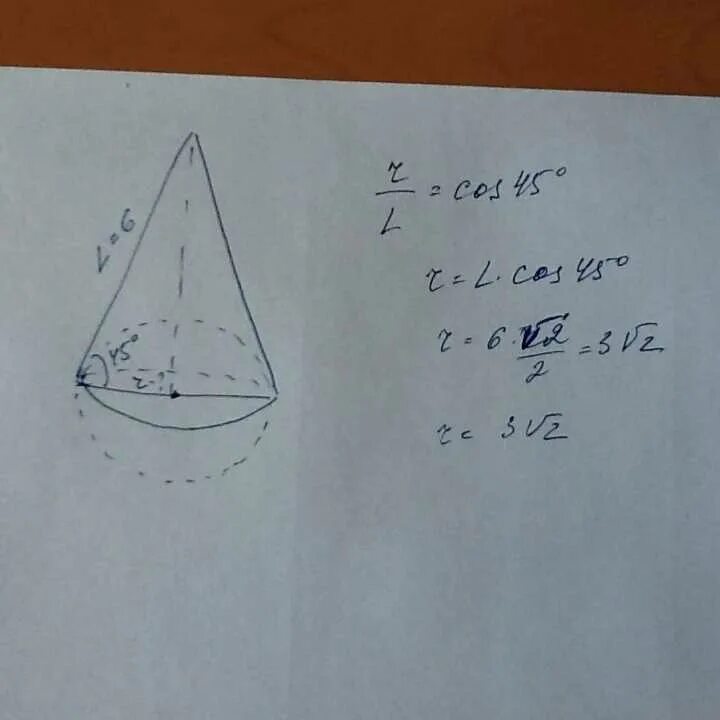 L=6
45°
r-?
r/L = cos 45°
r = L · cos 45°
r = 6 · √2/2 = 3√2
r = 3√2